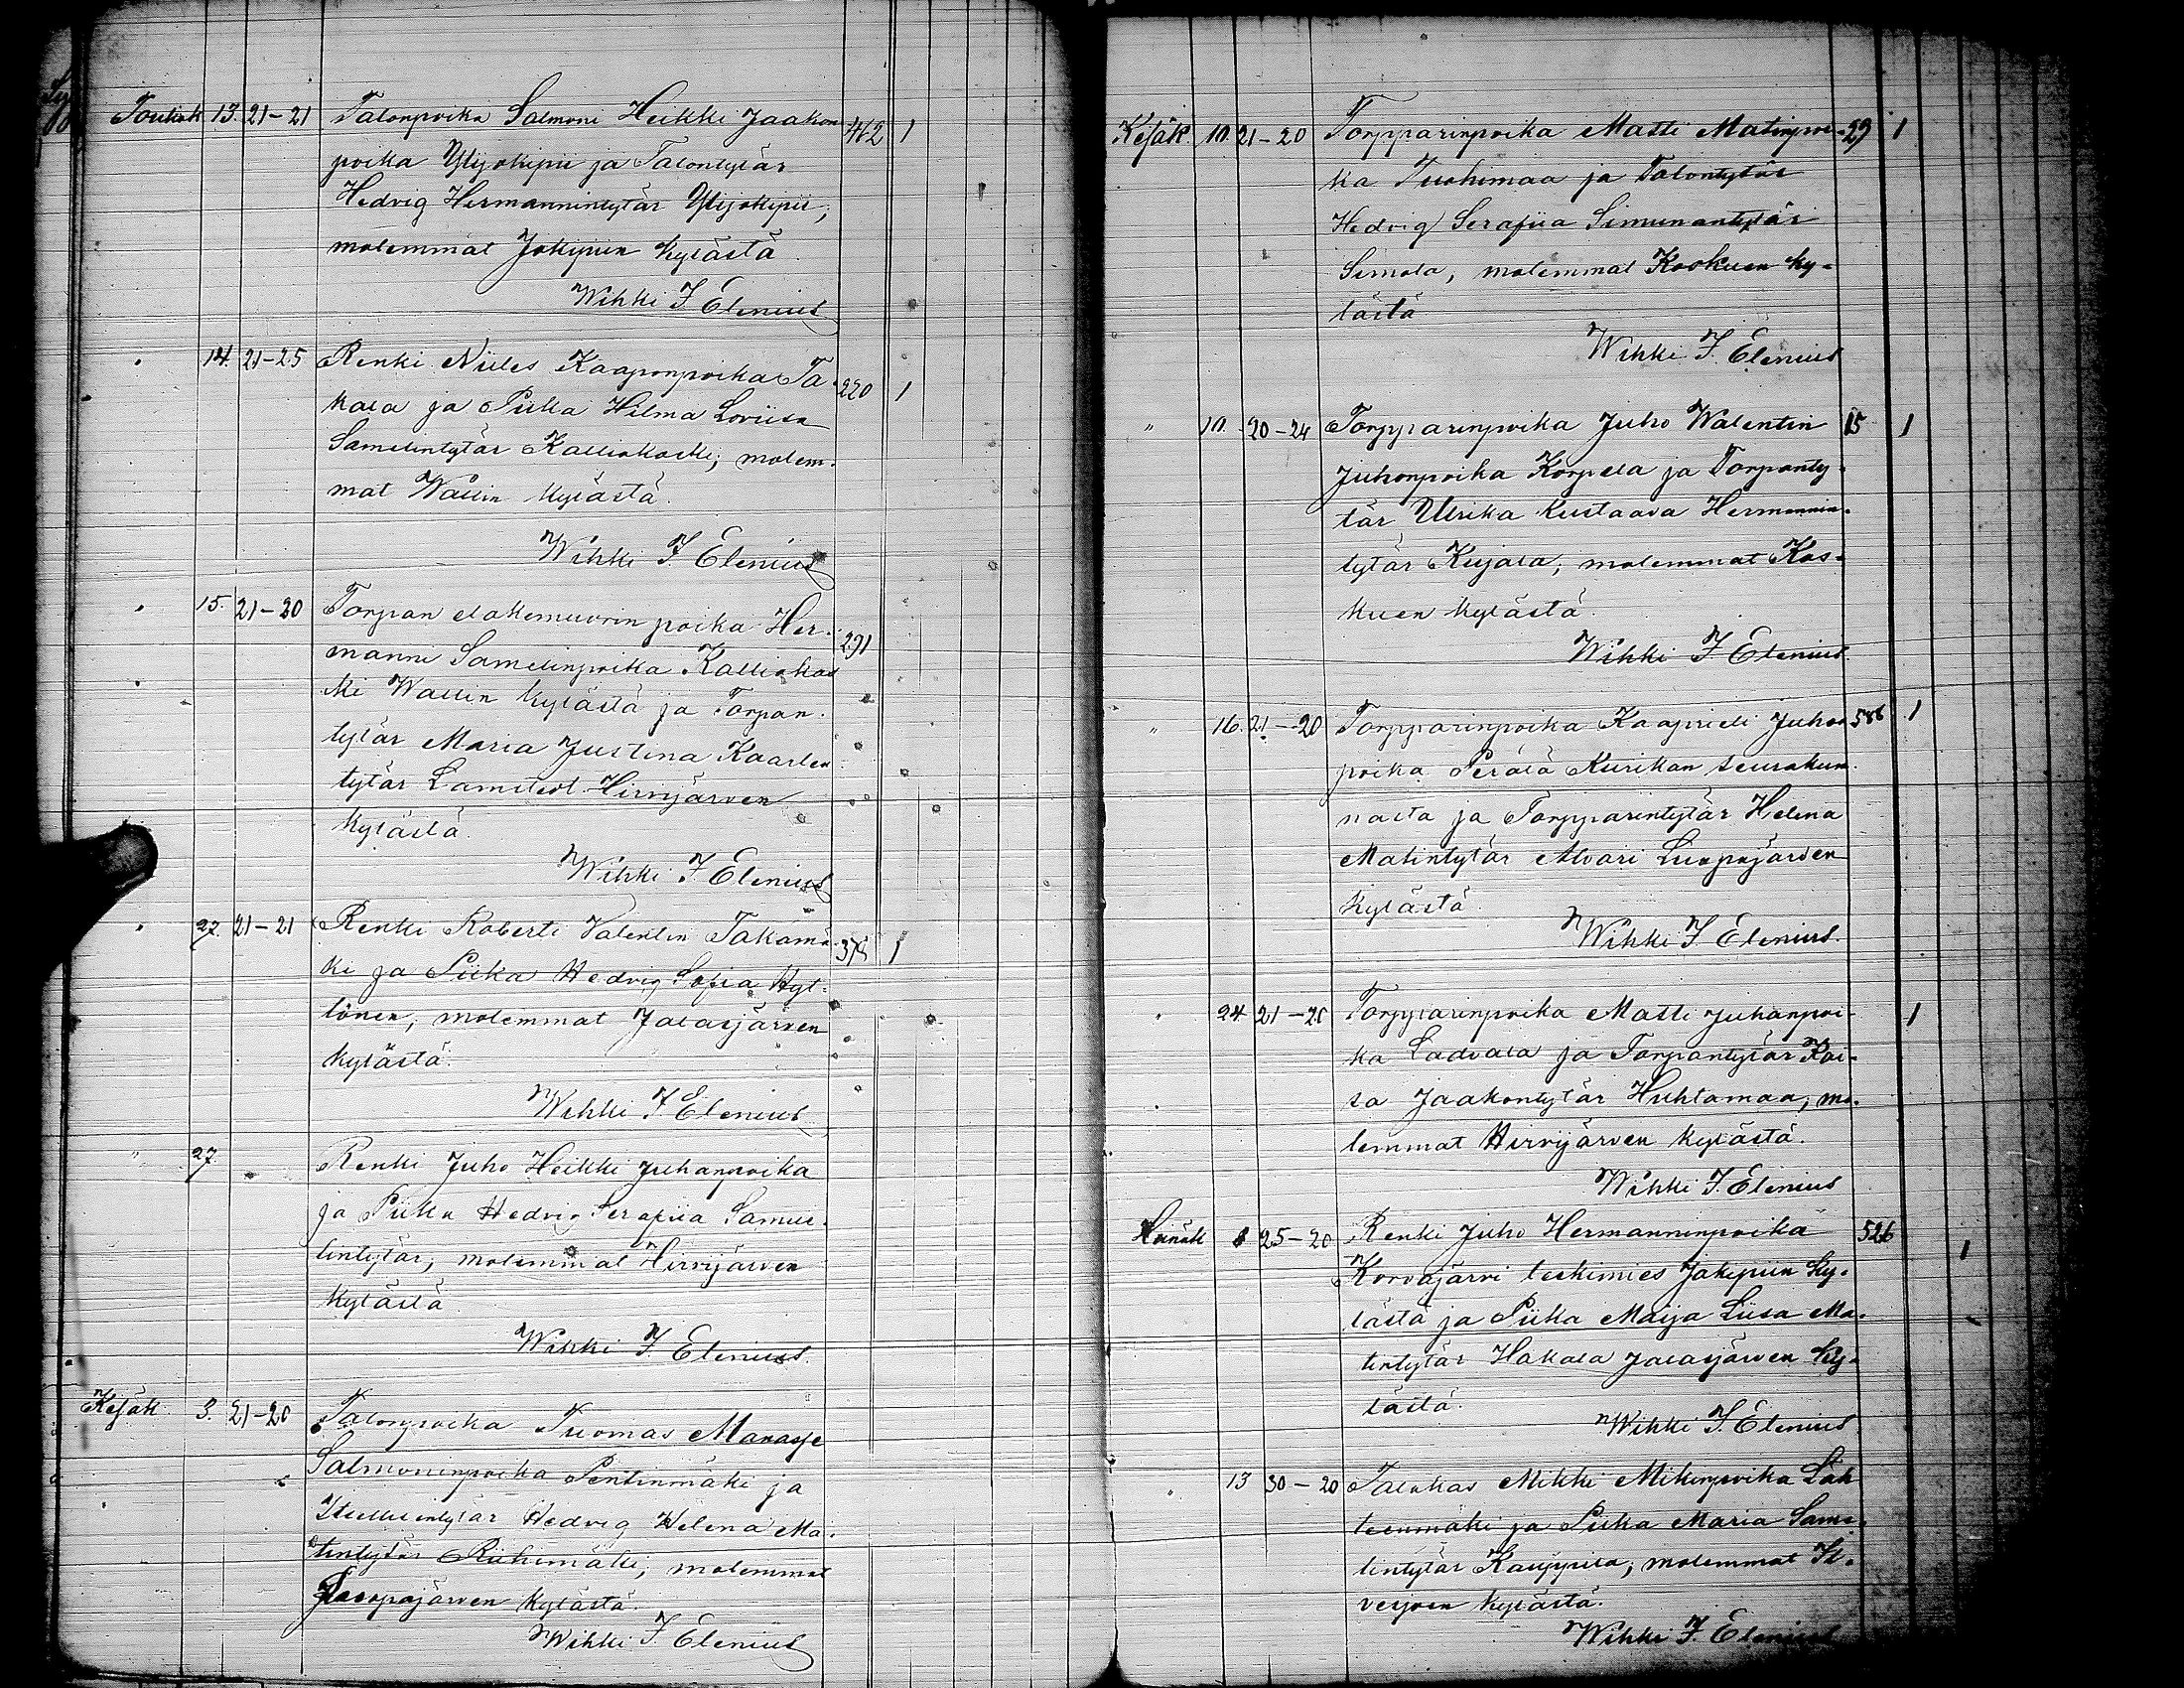 Toukok 13. 21-21 Talonpoika Salmoni Heikki Jaakon 462 1
poika Ylijokipii ja Talontytär
Hedvig Hermannintytär Ylijokipii,
molemmat Jokipiin kylästä.
Wihki J Elenius
" 14. 21-25 Renki Niiles Kaaponpoika Ta- 220 1
kala ja Piika Hilma Loviisa
Samelintytär Kalliokoski; molem-
mat Wallin kylästä.
Wihki J Elenius
" 15. 21-20 Torpan elakemuorin poika Her- 291
manni Samelinpoika Kallioko
ki Wallin kylästä ja Torpan-
tytär Maria Justina Kaarlen
tytär Lamstedt Hirvijärven
kylästä.
Wihki J. Elenius
" 27. 21-21 Renki Roberti Valentin Takamä-
ki ja Piika Hedvig Sofia Hyt-
tönen, molemmat Jalasjärven
kylästä.
Wihki J Elenius
" 27. Renki Juho Heikki Juhanpoika
ja Piika Hedvig Serafiia Samue-
lintytär, molemmat Hirvijärven
kylästä.
Wihki J. Elenius.
Kesäk. 3. 21-20 Talonpoika Tuomas Manasse
Salmoninpoika Pentinmäki ja
Itsellisentytär Hedvig Helena Ma-
tintytär Riihimäki, molemmat
Luopajärven kylästä.
Wihki J. Elenius
Kesäk. 10. 21-20 Torpparinpoika Matti Matinpoi- 29 1
ka Tuohimaa ja Talontytär
Hedvig Serafiia Simunantytär
Simola, molemmat Koskuen ky-
lästä
Wihki J. Elenius
" 10. 20-24 Torpparinpoika Juho Walentin 15 1
Juhonpoika Korpela ja Torpanty-
tär Ulrika Kustaava Hermannin-
tytär Kujala, molemmat Kos-
kuen kylästä.
Wihki J. Elenius.
" 16. 21-20 Torpparinpoika Kaaprieli Juhon 586 1
poika Perälä Kurikan seurakun-
nasta ja Torpparintytär Helena
Matintytär Alvari Luopajärven
kylästä.
Wihki J Elenius.
" 24 21-20 Torpparinpoika Matti Juhanpoi- 1
ka Ladvala ja Torpantytär Kai-
sa Jaakontytär Huhtamaa, mo-
lemmat Hirvijärven kylästä.
Wihki J. Elenius
Heinäk 8 25-20 Renki Juho Hermanninpoika 526 1
Korvajärvi leskimies Jokipiin ky-
lästä ja Piika Maija Liisa Ma-
tintytär Hakala Jalasjärven ky-
lästä.
Wihki J. Elenius
" 13 30-20 Talokas Mikki Mikinpoika Läh
teenmäki ja Piika Maria Same-
lintytär Kauppila, molemmat Il-
vesjoen kylästä.
Wihki J. Elenius